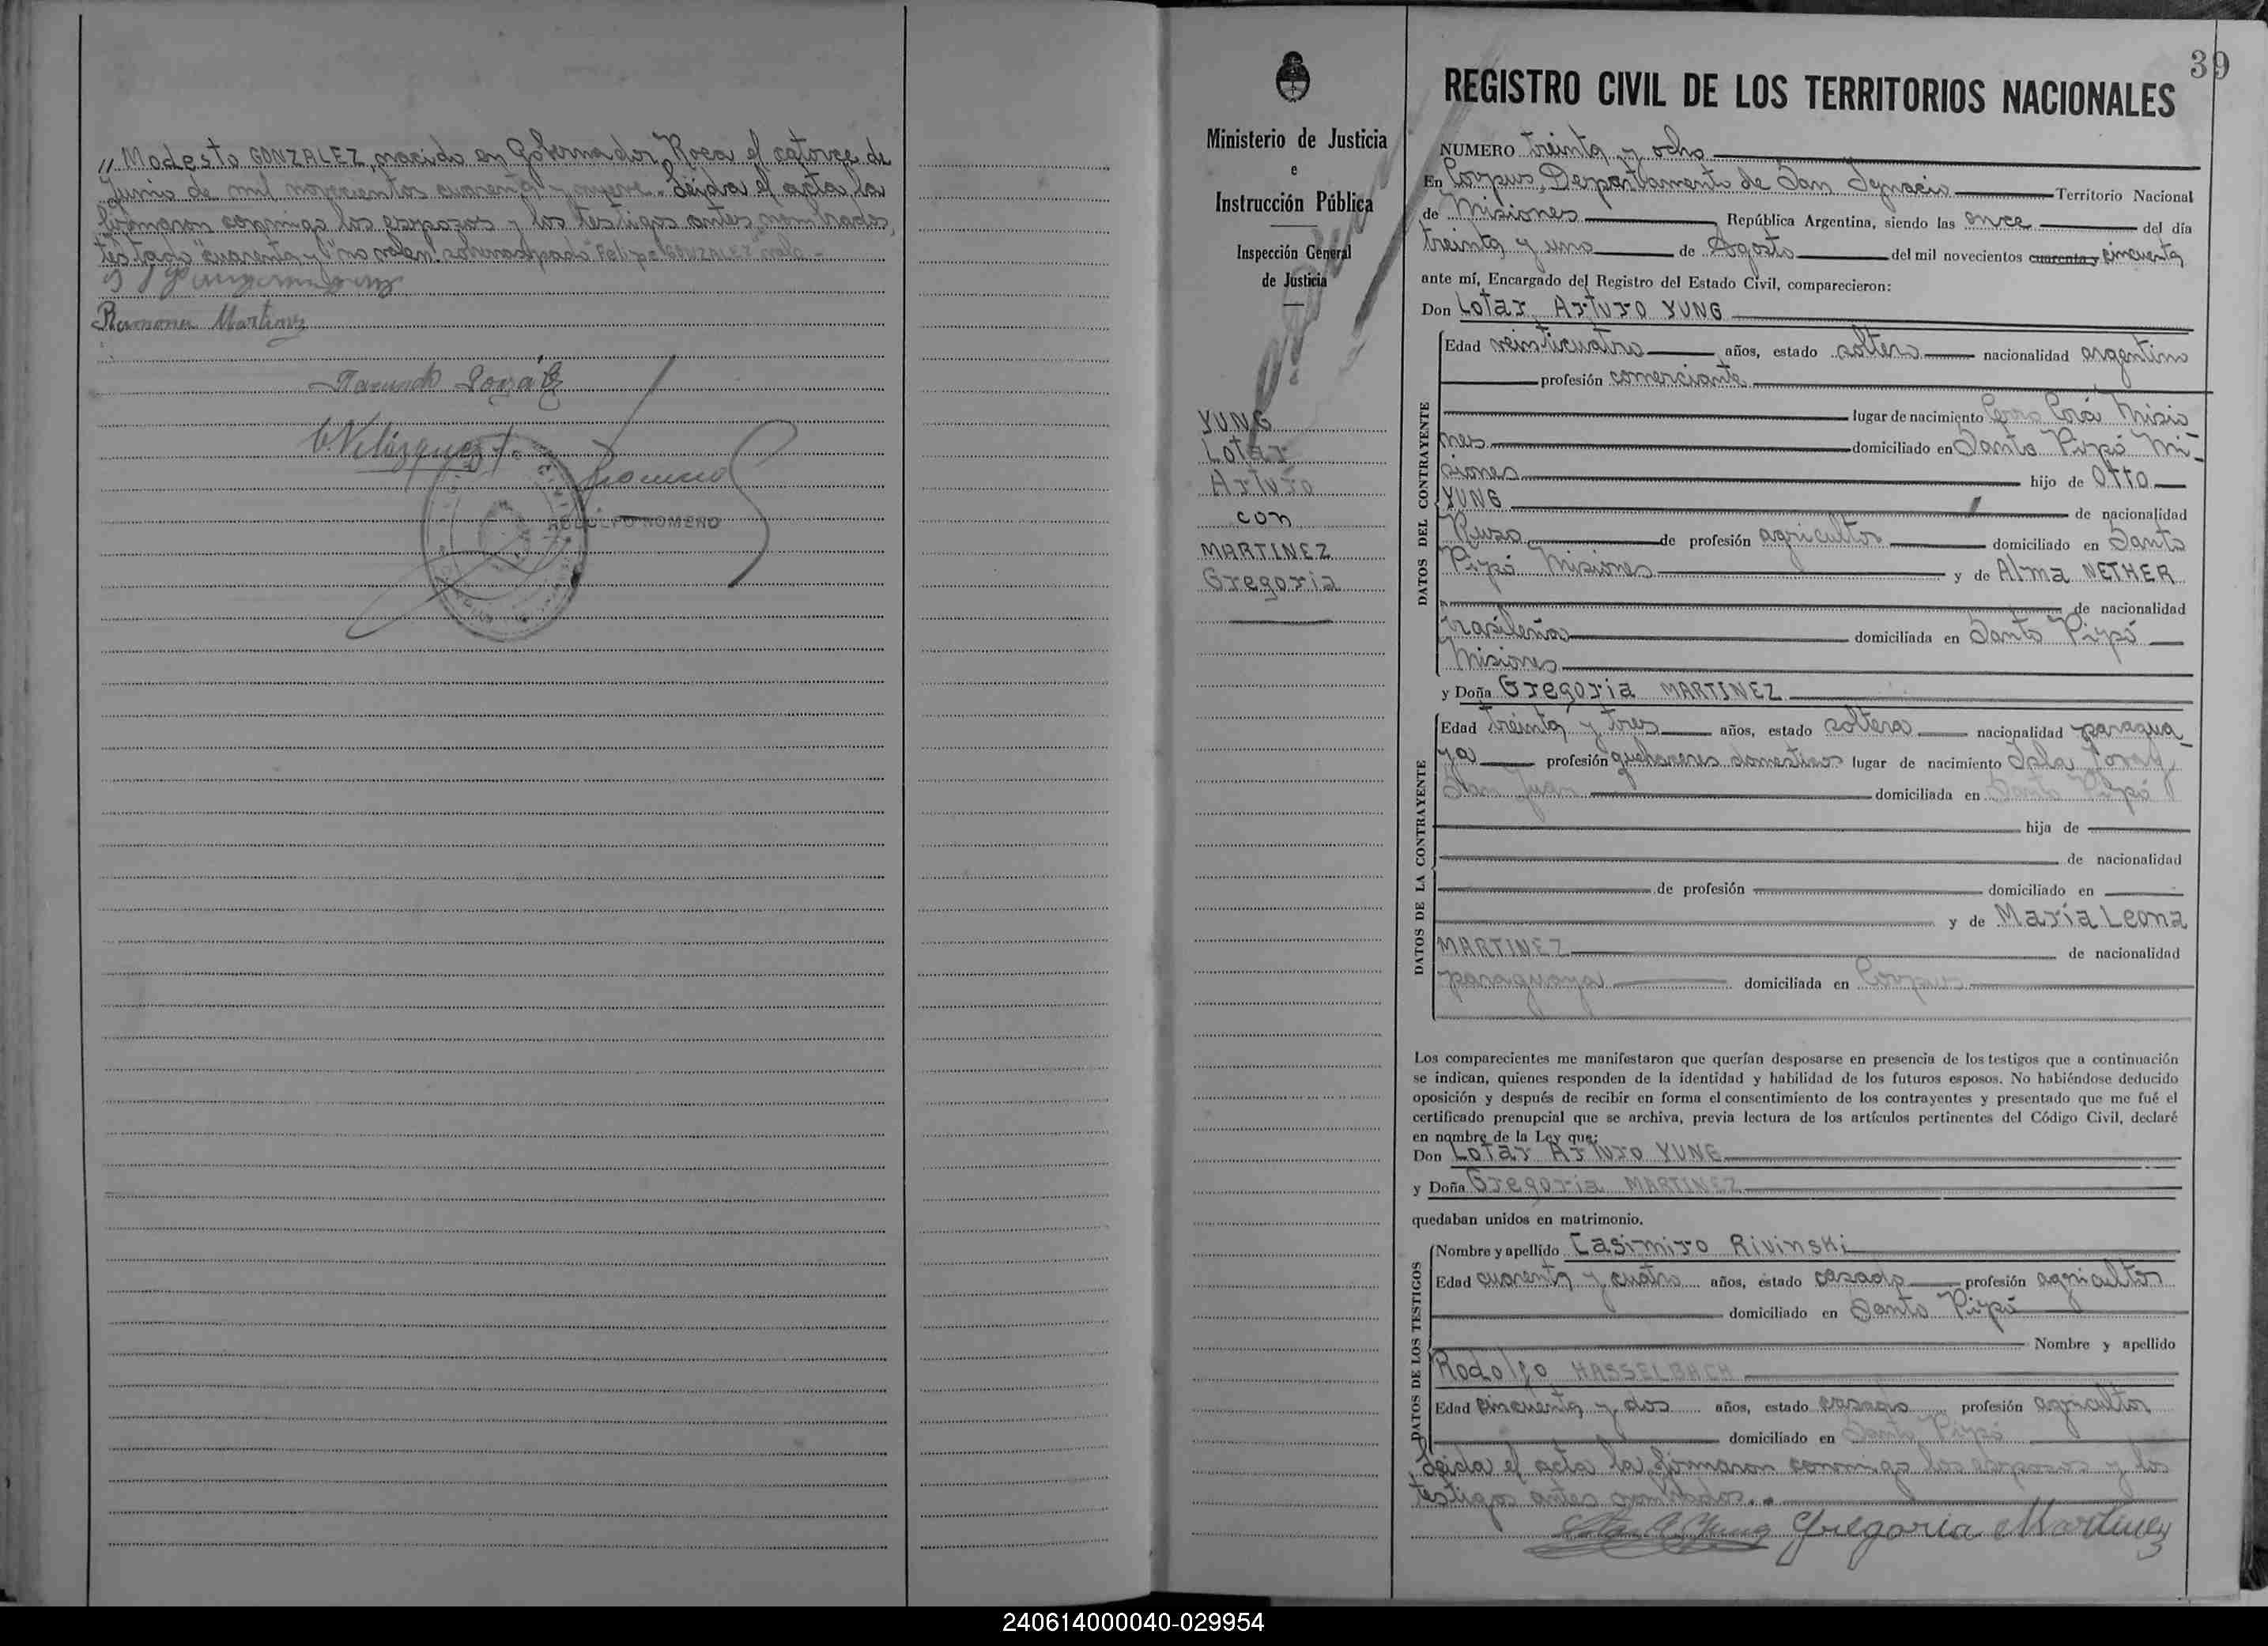 // Modesto GONZALEZ, nacido en Gobernador Roca el catorce de
Junio de mil novecientos cuarenta y nueve. Leida el acta la
firmaron conmigo los esposos y los testigos antes nombrados,
testado "cuarenta y" no valen. sobrerraspado "Felipe GONZALEZ" vale.-
Ramona Martinez
C. Velázquez
Romero
RODOLFO ROMERO
39
Ministerio de Justicia
e
Instrucción Pública
Inspección General
de Justicia
YUNG
Lotar
Arturo
con
MARTINEZ
Gregoria
REGISTRO CIVIL DE LOS TERRITORIOS NACIONALES
NUMERO treinta y ocho
En Corpus, Departamento de San Ignacio Territorio Nacional
de Misiones República Argentina, siendo las once del día
treinta y uno de Agosto del mil novecientos cuarenta y cincuenta
ante mí, Encargado del Registro del Estado Civil, comparecieron:
Don Lotar Arturo YUNG
DATOS DEL CONTRAYENTE
Edad veinticuatro años, estado soltero nacionalidad argentino
profesión comerciante
lugar de nacimiento Cerro Corá Misio
nes domiciliado en Santo Pipó Mi-
siones hijo de Otto
YUNG de nacionalidad
Ruso de profesión agricultor domiciliado en Santo
Pipó Misiones y de Alma NETHER
de nacionalidad
brasileña domiciliada en Santo Pipó
Misiones
y Doña Gregoria MARTINEZ
DATOS DE LA CONTRAYENTE
Edad treinta y tres años, estado soltera nacionalidad paragua-
ya profesión quehaceres domesticos lugar de nacimiento Isla
San Juan domiciliada en Santo Pipó
hija de
de nacionalidad
de profesión domiciliado en
y de María Leona
MARTINEZ de nacionalidad
paraguaya domiciliada en Corpus
Los comparecientes me manifestaron que querían desposarse en presencia de los testigos que a continuación
se indican, quienes responden de la identidad y habilidad de los futuros esposos. No habiéndose deducido
oposición y después de recibir en forma el consentimiento de los contrayentes y presentado que me fué el
certificado prenupcial que se archiva, previa lectura de los artículos pertinentes del Código Civil, declaré
en nombre de la Ley que:
Don Lotar Arturo YUNG
y Doña Gregoria MARTINEZ
quedaban unidos en matrimonio.
DATOS DE LOS TESTIGOS
Nombre y apellido Casimiro Rivinski
Edad cuarenta y cuatro años, estado casado profesión agricultor
domiciliado en Santo Pipó
Nombre y apellido
Rodolfo HASSELBACH
Edad cincuenta y dos años, estado casado profesión agricultor
domiciliado en Santo Pipó
Leida el acta la firmaron conmigo los esposos y los
testigos antes nombrados.
Gregoria Martinez
240614000040-029954